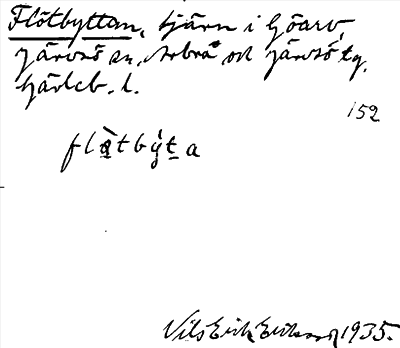 Flötbyttan, tjärn i Göarv,
Järvsö sn, Arbrå och Järvsö tg,
Gävleb. l.
152
flätbýta
Nils Erik Eriksson 1935.